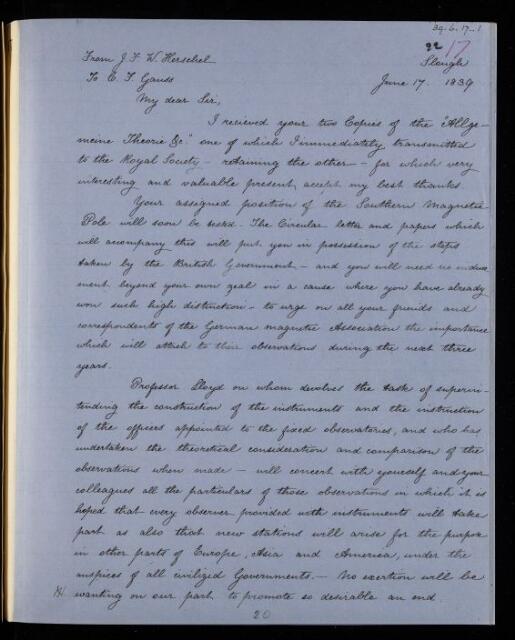 39.6.17.1
22 17
From J. F. W. Herschel
Slough
To C. F. Gauss
June 17. 1839
My dear Sir,
I recieved your two Copies of the "Allge-
meine Theorie &c." one of which I immediately transmitted
to the Royal Society – retaining the other – for which very
interesting and valuable present, accept my best thanks.
Your assigned position of the Southern Magnetic
Pole will soon be tested – The Circular letter and papers which
will accompany this will put you in possession of the steps
taken by the British Government – and you will need no induce
ment beyond your own zeal in a cause where you have already
won such high distinction – to urge on all your friends and
correspondents of the German magnetic Association the importance
which will attach to their observations during the next three
years.
Professor Lloyd on whom devolves the task of superin-
tending the construction of the instruments and the instruction
of the officers appointed to the fixed observatories, and who has
undertaken the theoretical consideration and comparison of the
observations when made – will concert with yourself and your
colleagues all the particulars of those observations in which it is
hoped that every observer provided with instruments will take
part as also that new stations will arise for the purpose
in other parts of Europe, Asia and America, under the
auspices of all civilized Governments. – No exertion will be
wanting on our part to promote so desirable an end.
20